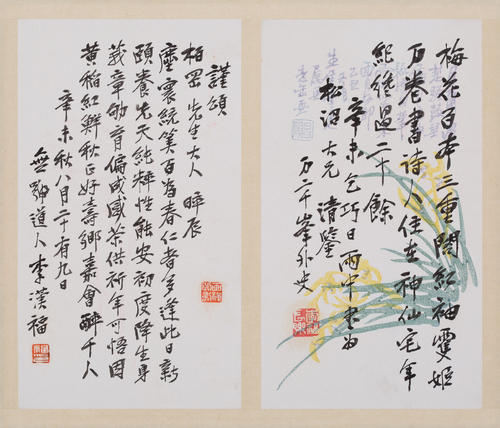 梅花百本三重閣紅袖雙姬
万卷書詩人住在神仙宅年
紀纔過二十餘
辛未乞巧日雨中書為
松沼大元清鑒
万二千峯外史
謹頌
柏罡先生大人晬辰
塵寰統筭百為春仁者多逢此日新
頤養先天純粹性能安初度降生身
莪章劬育偏成感茶供祈年可悟因
黃稻紅鮮秋正好壽鄉嘉會醉千人
辛未秋八月二十有九日
無號道人李漢福